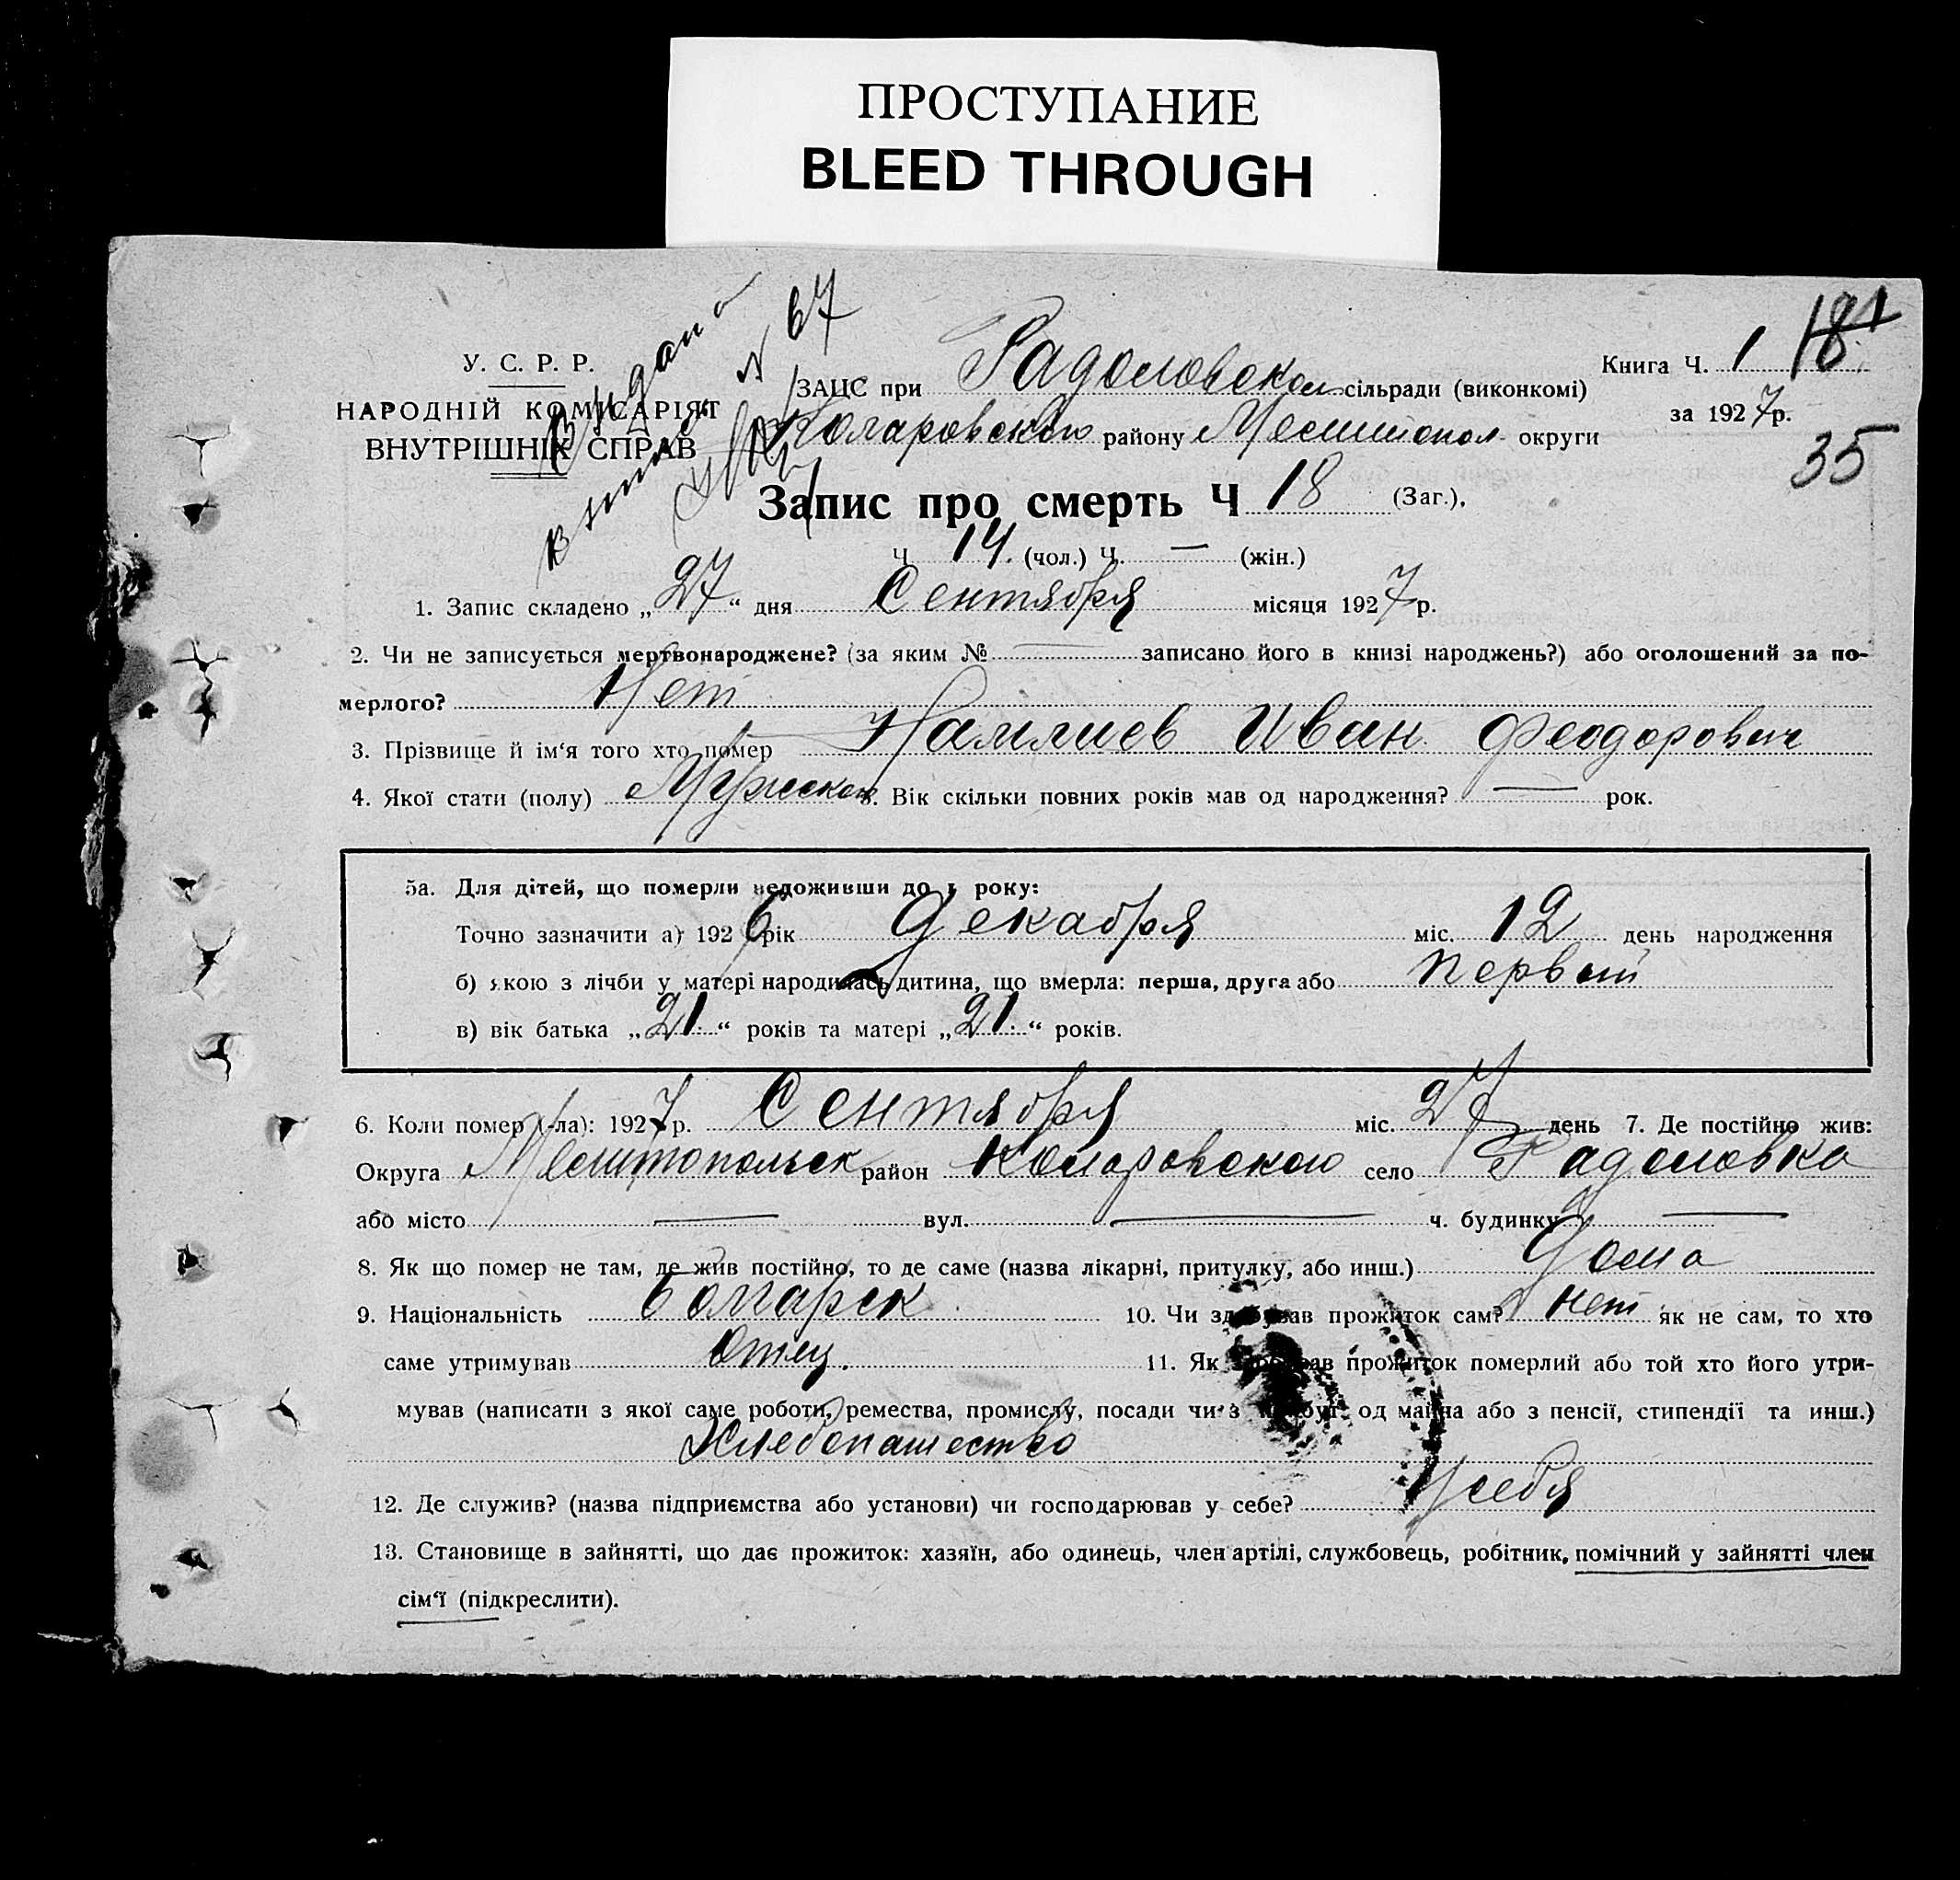 ПРОСТУПАНИЕ
BLEED THROUGH
Видано
№ 67
У. С. Р. Р.
НАРОДНІЙ КОМІСАРІЯТ
ВНУТРІШНІХ СПРАВ
Книга Ч. 1 18
ЗАЦС при Радоловском сільраді (виконкомі)
за 1927р.
Коларовского району Мелитопол округи
35
Запис про смерть Ч 18 (Заг.),
Ч. 14. (чол.) Ч. — (жін.)
1. Запис складено „27“ дня Сентября місяця 1927 р.
2. Чи не записується мертвонароджене? (за яким № — записано його в книзі народжень?) або оголошений за по-
мерлого? Нет
3. Прізвище й ім‘я того хто помер Намлиев Иван Феодорович
4. Якої стати (полу) Мужской 5. Вік скільки повних років мав од народження? — рок.
5а. Для дітей, що померли недоживши до 1 року:
Точно зазначити а) 1926 рік Декабря міс. 12 день народження
б) якою з лічби у матері народилась дитина, що вмерла: перша, друга або первый
в) вік батька „21.“ років та матері „21.“ років.
6. Коли помер (-ла): 1927 р. Сентября міс. 27 день 7. Де постійно жив:
Округа Мелитопольск район Коларовского село Радоловка
або місто — вул. — ч. будинку —
8. Як що помер не там, де жив постійно, то де саме (назва лікарні, притулку, або инш.) Дома
9. Національність болгарск 10. Чи здобував прожиток сам? нет як не сам, то хто
саме утримував Отец. 11. Як здобував прожиток померлий або той хто його утри-
мував (написати з якої саме роботи, ремества, промислу, посади чи з од майна або з пенсії, стипендії та инш.)
Хлебопашество
12. Де служив? (назва підприємства або установи) чи господарював у себе? У себя
13. Становище в зайнятті, що дає прожиток: хазяїн, або одинець, член артілі, службовець, робітник, помічний у зайнятті член
сім‘ї (підкреслити).